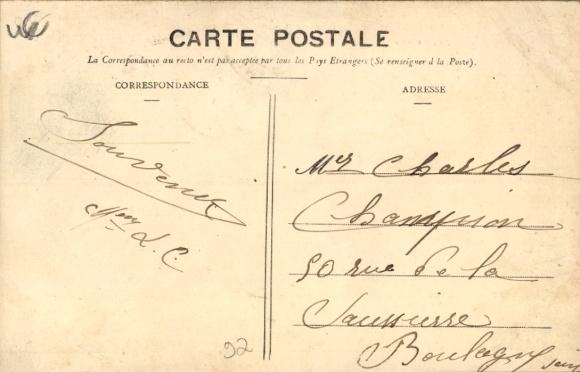 CARTE POSTALE
La Correspondance au recto n'est pas acceptée par tous les Pays Etrangers (Se renseigner à la Poste).
CORRESPONDANCE
ADRESSE
Souvenir
L. C.
Mr Charles
Champion
50 rue de la
Saussierre
Boulogne
92